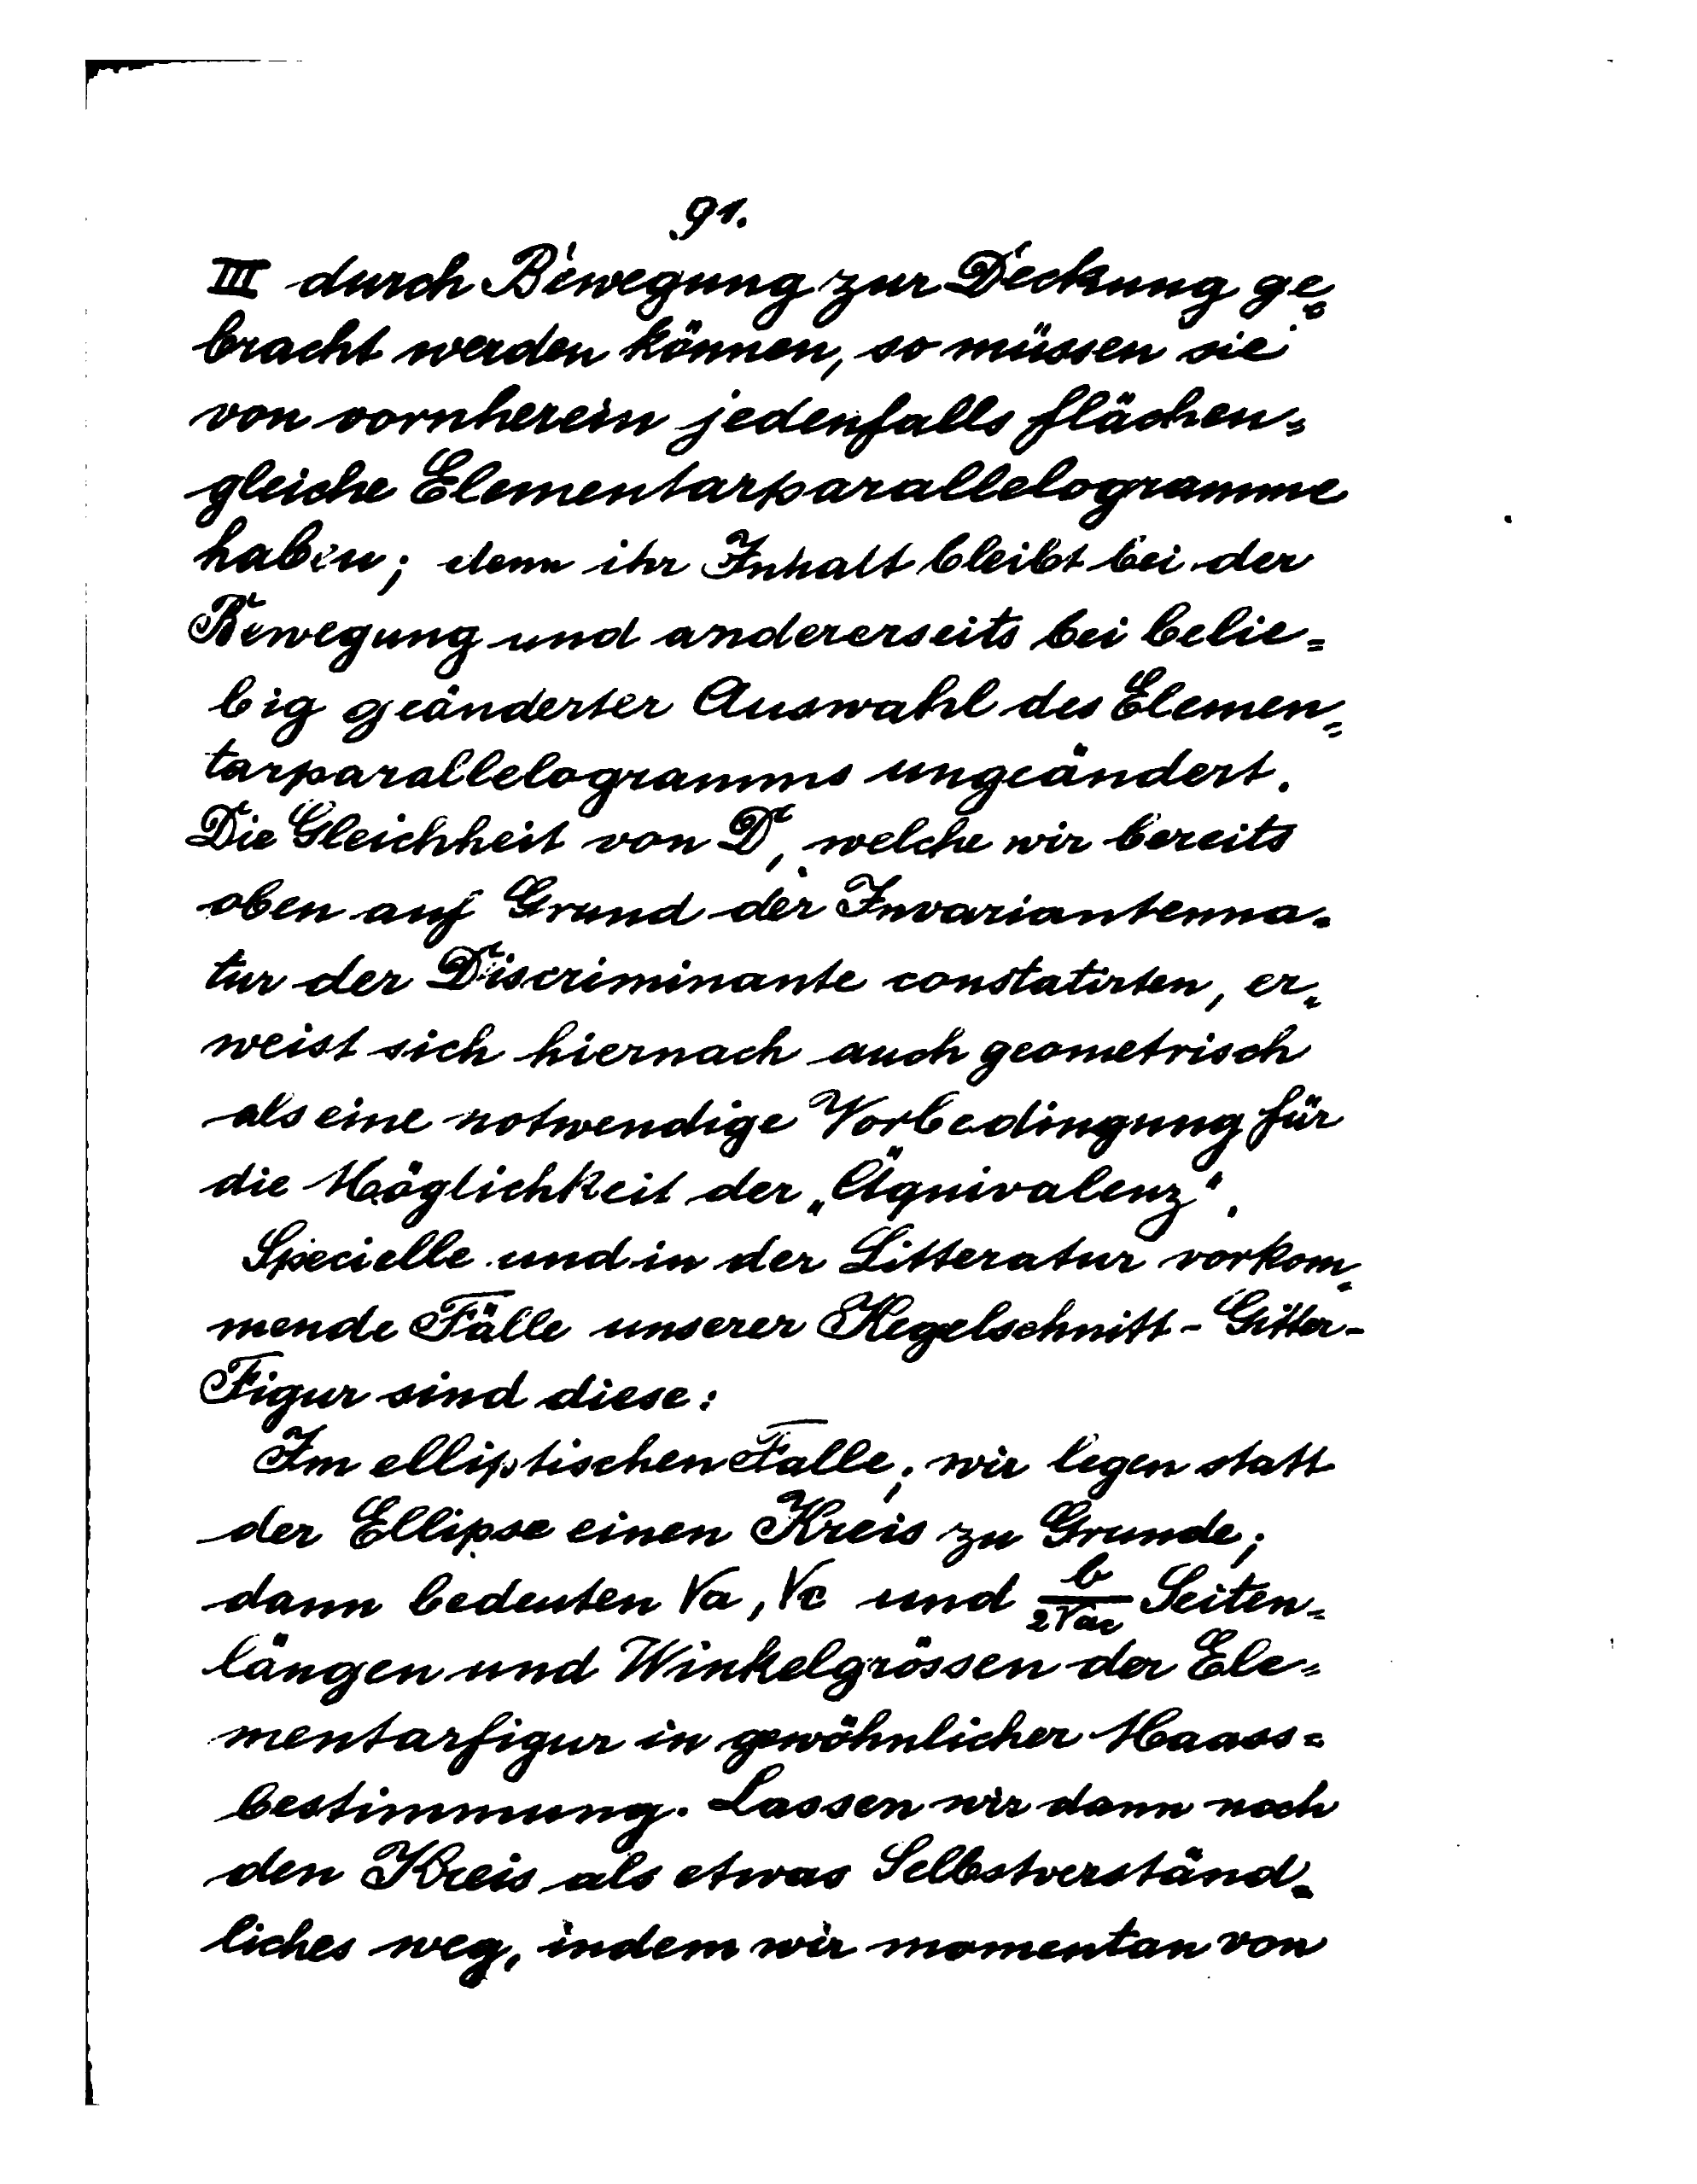 91.
III durch Bewegung zur Deckung ge=
bracht werden können, so müssen sie
von vornherein jedenfalls flächen=
gleiche Elementarparallelogramme
haben; denn ihr Inhalt bleibt bei der
Bewegung und andererseits bei belie=
big geänderter Auswahl des Elemen=
tarparallelogramms ungeändert.
Die Gleichheit von D, welche wir bereits
oben auf Grund der Invariantenna=
tur der Discriminante constatirten, er=
weist sich hiernach auch geometrisch
als eine notwendige Vorbedingung für
die Möglichkeit der „Äquivalenz".
Specielle und in der Litteratur vorkom=
mende Fälle unserer Kegelschnitt-Gitter-
Figur sind diese:
Im elliptischen Falle; wir legen statt
der Ellipse einen Kreis zu Grunde;
dann bedeuten √a, √c und b/2√ac Seiten=
längen und Winkelgrössen der Ele=
mentarfigur in gewöhnlicher Maass=
bestimmung. Lassen wir dann noch
den Kreis als etwas Selbstverständ=
liches weg, indem wir momentan von